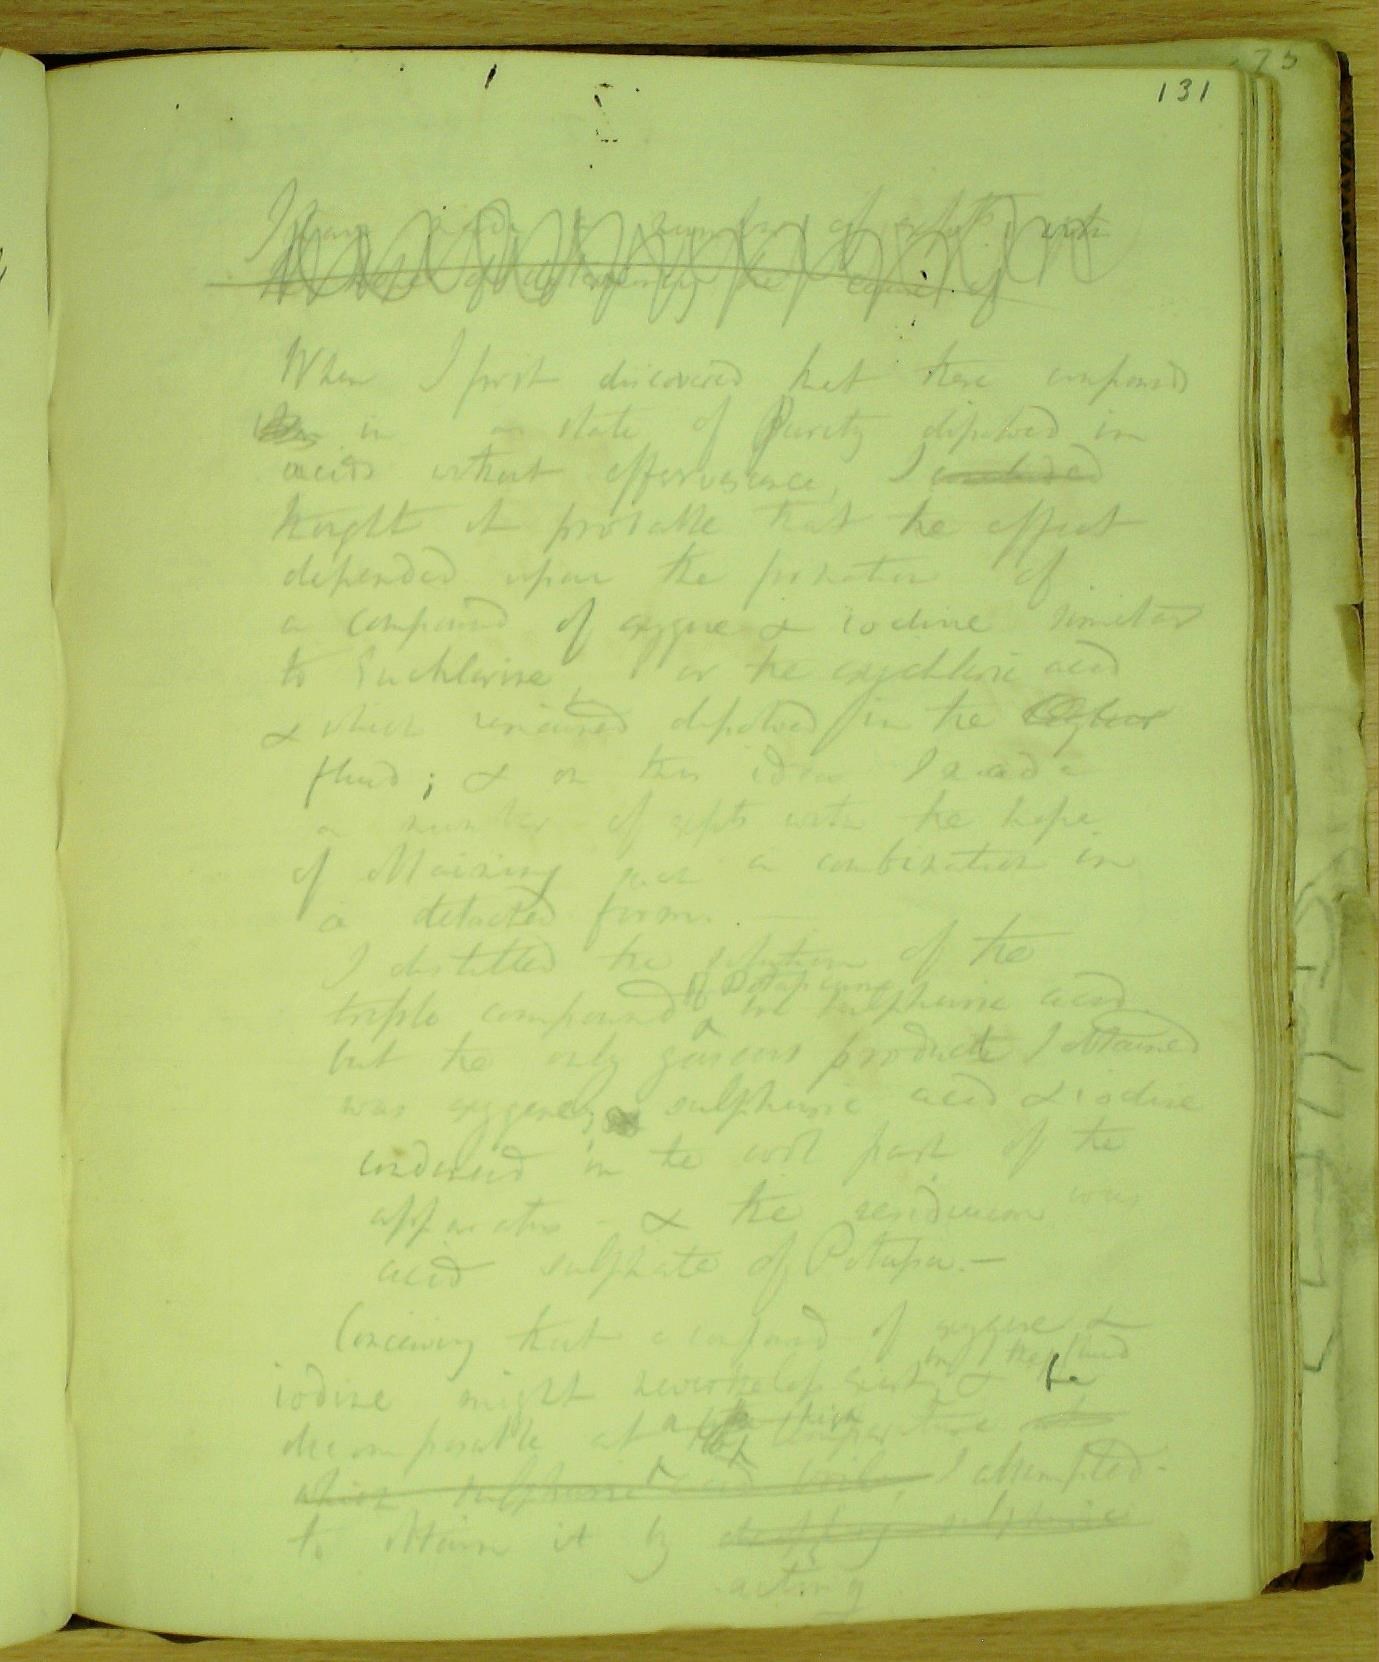 131
I have made a number of expts with
the hope of decomposing the
When I first discovered that these compounds
in a state of Purity dissolved in
acids without effervescence, I concluded
thought it probable that the effect
depended upon the formation of
a compound of oxygene & iodine similar
to Euchlorine, or the oxychloric acid
& which remained dissolved in the
fluid; & on this idea I made
a number of expts with the hope
of obtaining such a combination in
a detached form. —
I distilled the solution of the
of Potassium
triple compound ^ the sulphuric acid
but the only gaseous products I obtained
was oxygene, sulphuric acid & iodine
condensed in the cool part of the
apparatus - & the residuum was
acid sulphate of Potassa. —
Conceiving that a compound of oxygene &
in the fluid
iodine might nevertheless exist ^ & be
decomposable at a high temperature at
which sulphuric acid boils, I attempted
to obtain it by sulphuric
acting